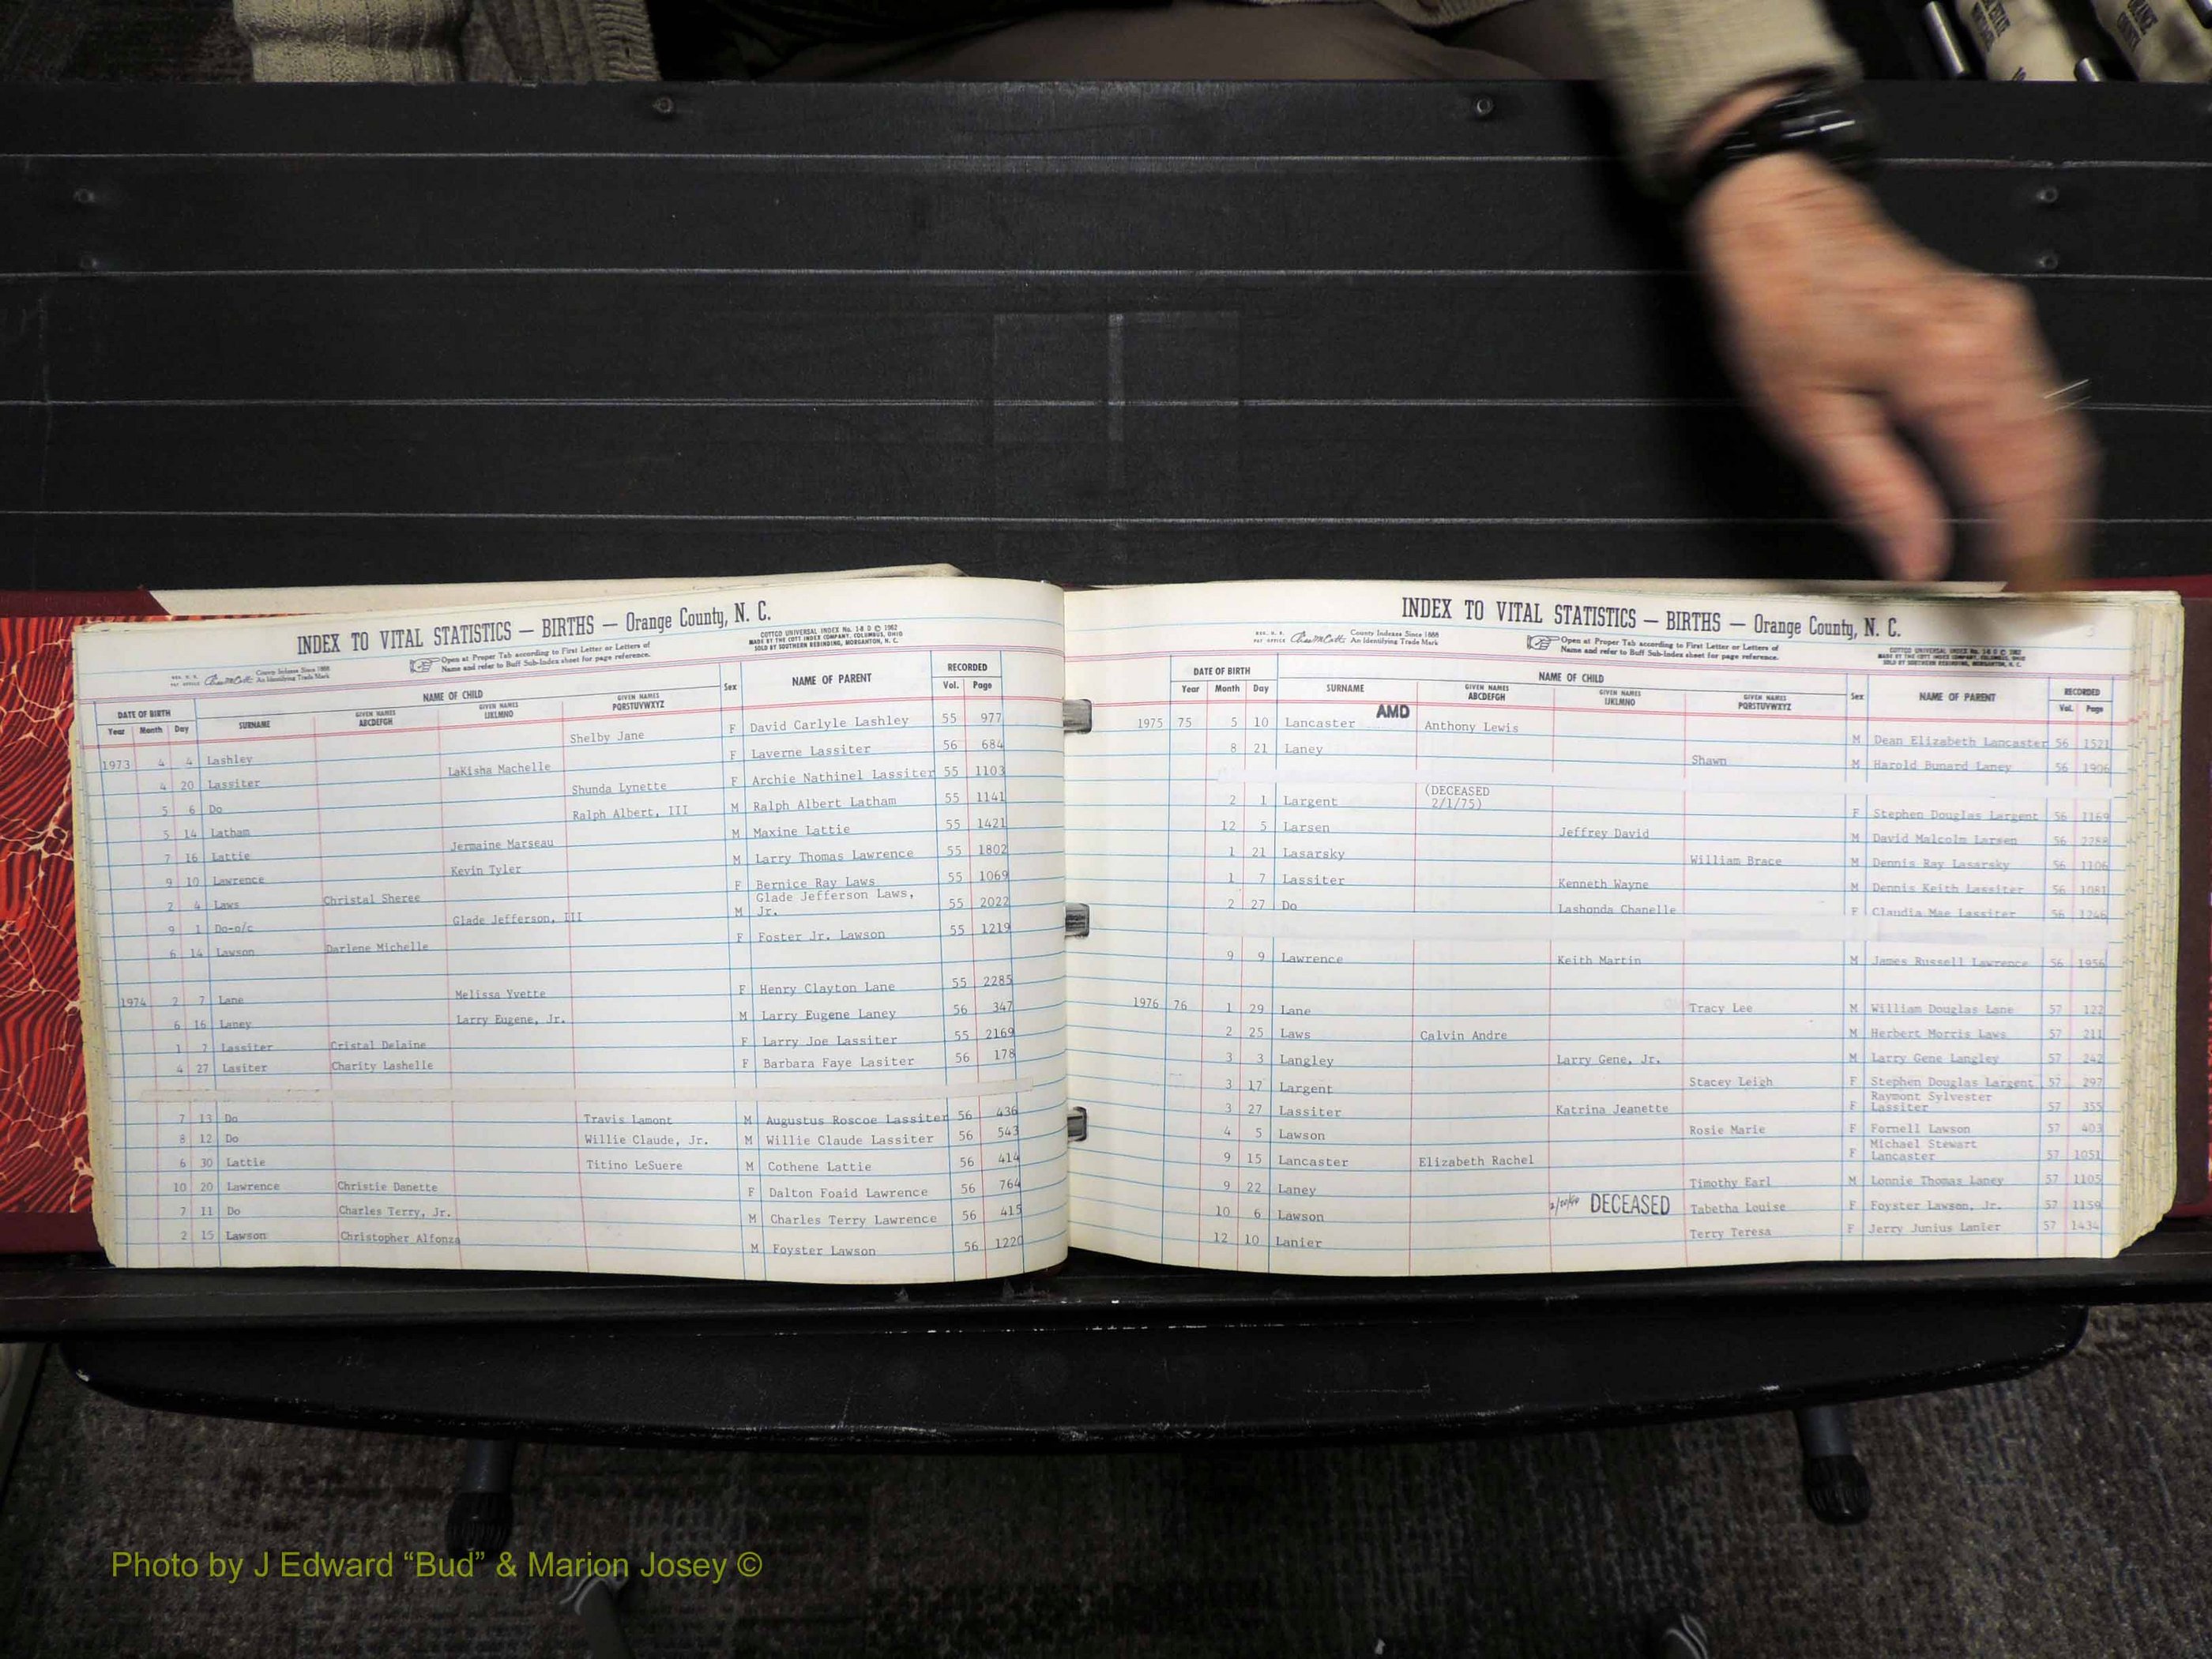 INDEX TO VITAL STATISTICS — BIRTHS — Orange County, N. C.
COTTCO UNIVERSAL INDEX No. 1-8 D © 1962
MADE BY THE COTT INDEX COMPANY, COLUMBUS, OHIO
SOLD BY SOUTHERN REBINDING, MORGANTON, N. C.
County Indexes Since 1888
An Identifying Trade Mark
Open at Proper Tab according to First Letter or Letters of
Name and refer to Buff Sub-Index sheet for page reference.
DATE OF BIRTH NAME OF CHILD Sex NAME OF PARENT RECORDED
Year Month Day SURNAME GIVEN NAMES ABCDEFGH GIVEN NAMES IJKLMNO GIVEN NAMES PQRSTUVWXYZ Vol. Page
1973 4 4 Lashley Shelby Jane F David Carlyle Lashley 55 977
4 20 Lassiter LaKisha Machelle F Laverne Lassiter 56 684
5 6 Do Shunda Lynette F Archie Nathinel Lassiter 55 1103
5 14 Latham Ralph Albert, III M Ralph Albert Latham 55 1141
7 16 Lattie Jermaine Marseau M Maxine Lattie 55 1421
9 10 Lawrence Kevin Tyler M Larry Thomas Lawrence 55 1802
2 4 Laws Christal Sheree F Bernice Ray Laws 55 1069
9 1 Do-o/c Glade Jefferson, III M Glade Jefferson Laws, Jr. 55 2022
6 14 Lawson Darlene Michelle F Foster Jr. Lawson 55 1219
1974 2 7 Lane Melissa Yvette F Henry Clayton Lane 55 2285
6 16 Laney Larry Eugene, Jr. M Larry Eugene Laney 56 347
1 7 Lassiter Cristal Delaine F Larry Joe Lassiter 55 2169
4 27 Lasiter Charity Lashelle F Barbara Faye Lasiter 56 178
7 13 Do Travis Lamont M Augustus Roscoe Lassiter 56 436
8 12 Do Willie Claude, Jr. M Willie Claude Lassiter 56 543
6 30 Lattie Titino LeSuere M Cothene Lattie 56 414
10 20 Lawrence Christie Danette F Dalton Foaid Lawrence 56 764
7 11 Do Charles Terry, Jr. M Charles Terry Lawrence 56 415
2 15 Lawson Christopher Alfonza M Foyster Lawson 56 1220
INDEX TO VITAL STATISTICS — BIRTHS — Orange County, N. C.
County Indexes Since 1888
An Identifying Trade Mark
Open at Proper Tab according to First Letter or Letters of
Name and refer to Buff Sub-Index sheet for page reference.
COTTCO UNIVERSAL INDEX No. 1-8 D © 1962
MADE BY THE COTT INDEX COMPANY, COLUMBUS, OHIO
SOLD BY SOUTHERN REBINDING, MORGANTON, N. C.
DATE OF BIRTH NAME OF CHILD Sex NAME OF PARENT RECORDED
Year Month Day SURNAME GIVEN NAMES ABCDEFGH GIVEN NAMES IJKLMNO GIVEN NAMES PQRSTUVWXYZ Vol. Page
1975 75 5 10 Lancaster AMD Anthony Lewis M Dean Elizabeth Lancaster 56 1521
8 21 Laney Shawn M Harold Bunard Laney 56 1906
2 1 Largent (DECEASED 2/1/75) F Stephen Douglas Largent 56 1169
12 5 Larsen Jeffrey David M David Malcolm Larsen 56 2288
1 21 Lasarsky William Brace M Dennis Ray Lasarsky 56 1106
1 7 Lassiter Kenneth Wayne M Dennis Keith Lassiter 56 1081
2 27 Do Lashonda Chanelle F Claudia Mae Lassiter 56 1246
9 9 Lawrence Keith Martin M James Russell Lawrence 56 1956
1976 76 1 29 Lane Tracy Lee M William Douglas Lane 57 122
2 25 Laws Calvin Andre M Herbert Morris Laws 57 211
3 3 Langley Larry Gene, Jr. M Larry Gene Langley 57 242
3 17 Largent Stacey Leigh F Stephen Douglas Largent 57 297
3 27 Lassiter Katrina Jeanette F Raymont Sylvester Lassiter 57 355
4 5 Lawson Rosie Marie F Fornell Lawson 57 403
9 15 Lancaster Elizabeth Rachel F Michael Stewart Lancaster 57 1051
9 22 Laney Timothy Earl M Lonnie Thomas Laney 57 1105
10 6 Lawson DECEASED Tabetha Louise F Foyster Lawson, Jr. 57 1159
12 10 Lanier Terry Teresa F Jerry Junius Lanier 57 1434
Photo by J Edward “Bud” & Marion Josey ©